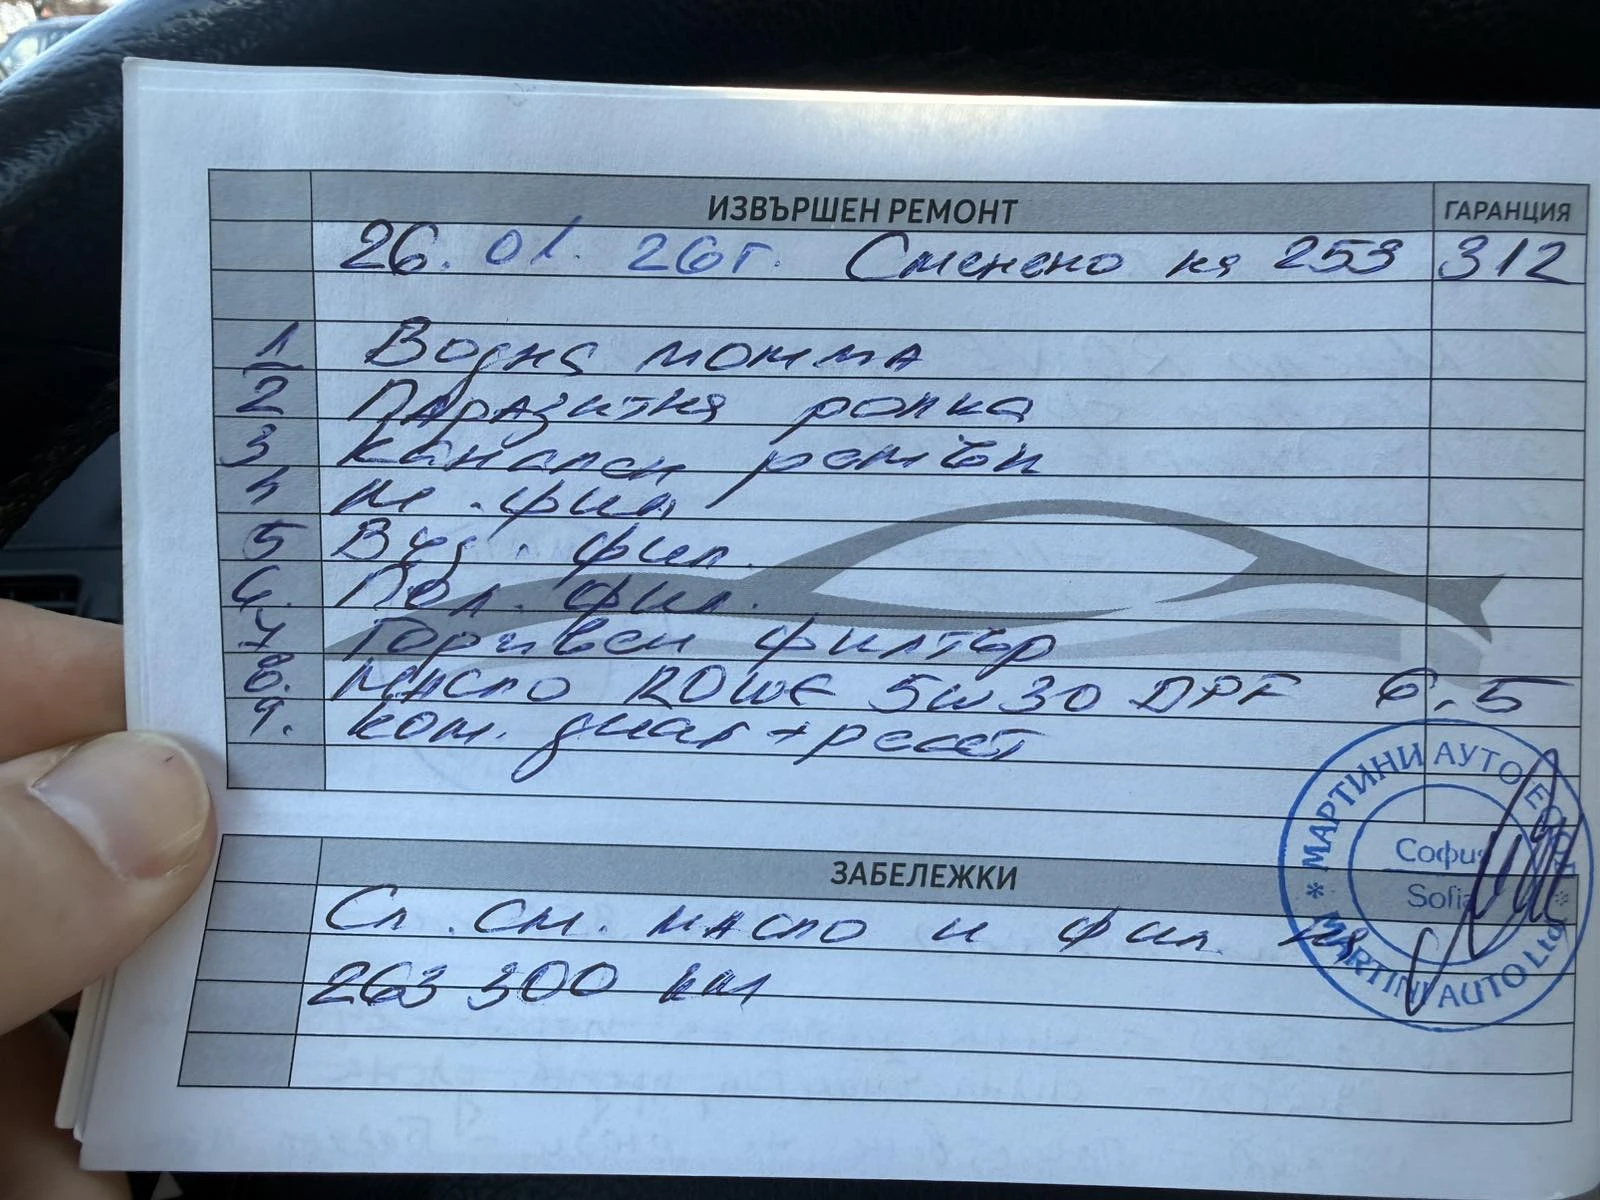 ИЗВЪРШЕН РЕМОНТ ГАРАНЦИЯ
26. 01. 26г. Сменено на 253 312
1 Водна помпа
2 Паразитна ролка
3 Канален ремък
4 М. фил.
5 Въз. фил.
6. Пол. фил.
7 Горивен филтър
8. Масло ROWE 5w30 DPF 6,5
9. ком. диаг + ресет
МАРТИНИ АУТО
София
Sofia
MARTINI AUTO Ltd
ЗАБЕЛЕЖКИ
Сл. см. масло и фил. на
263 300 км